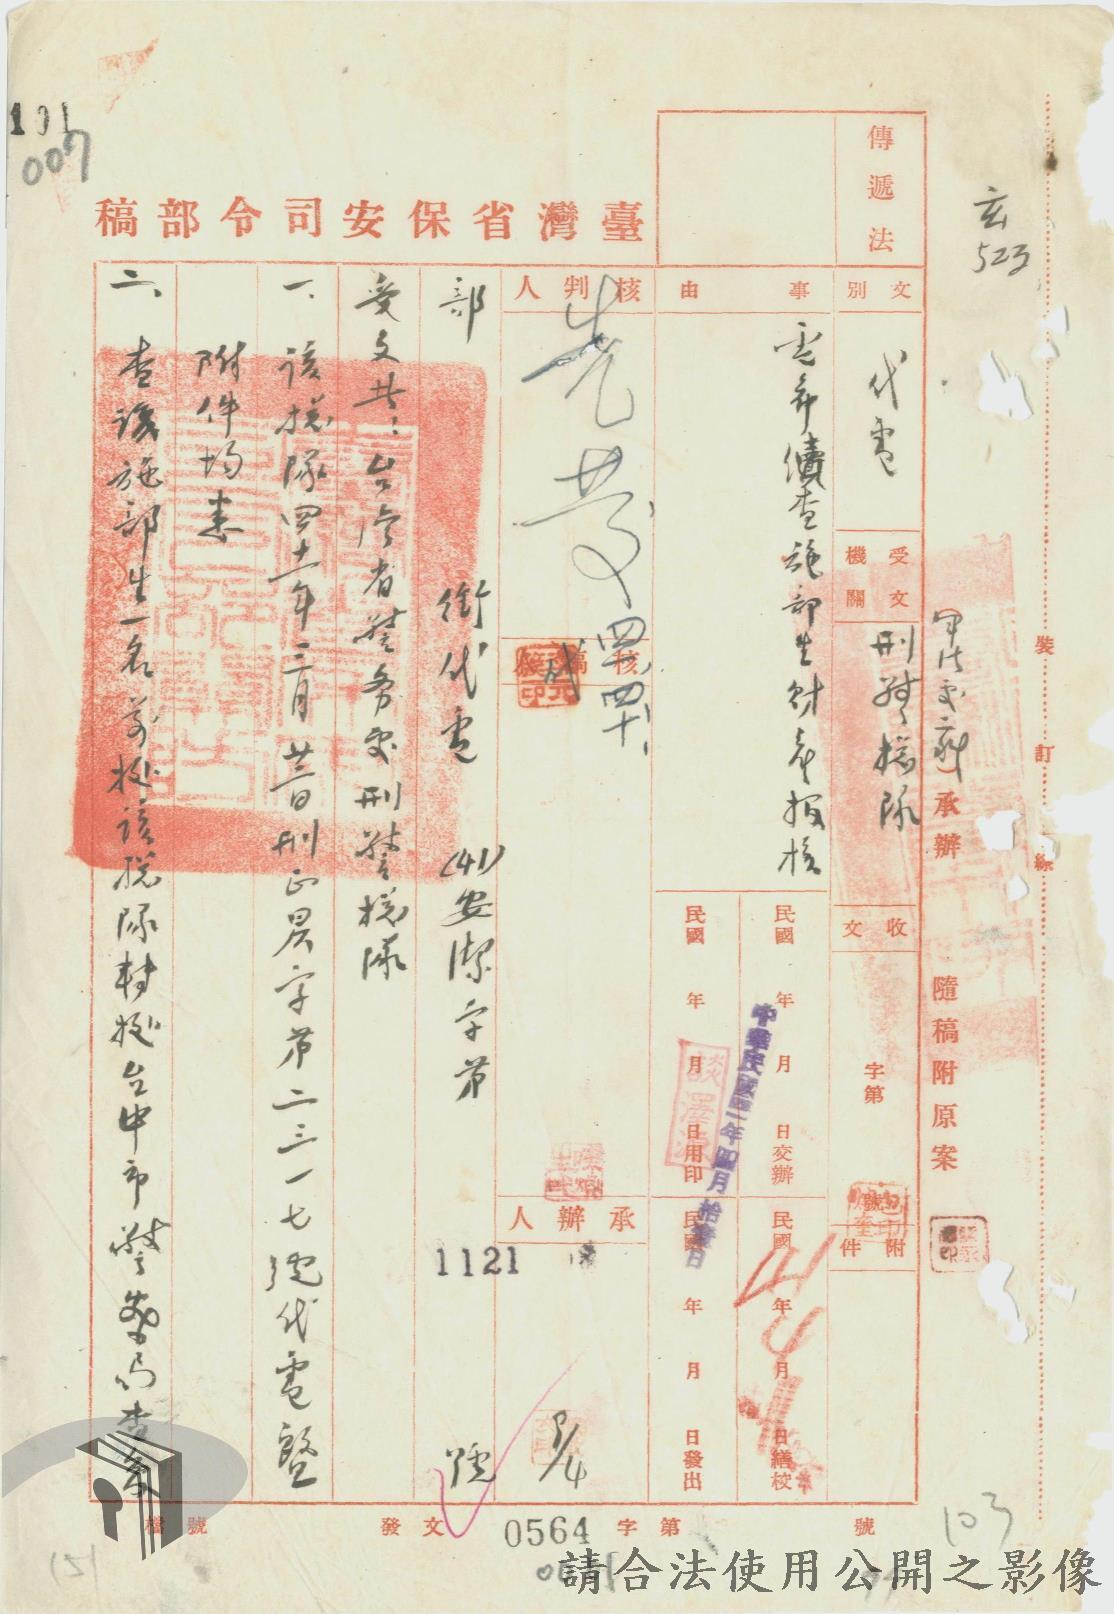 101
007
玄
523
臺灣省保安司令部稿
傳遞法
軍法處
承辦
隨稿附原案
裝訂線
文別
代電
受文機關
刑警總隊
收文
字第
號
附件
事由
電希續查施部生財產報核
民國 年 月 日交辦
民國 年 月 日繕校
民國 年 月 日用印
民國 年 月 日發出
中華民國四一年四月拾
談澤
核判人
核稿
承辦人
8/4
部 銜代電 (41)安潔字第 1121 號
受文共：台灣省警務處刑警總隊
一、該總隊四十一年三月廿二日刑正昃字第二三一七號代電暨
附件均悉
二、查該施部生一名前據該總隊轉據台中市警察局查
發文 字第 號
0564
檔號
103
151
請合法使用公開之影像